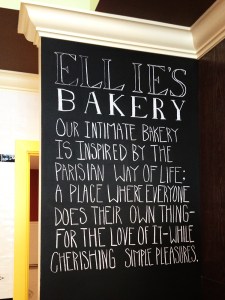 ELLIE'S
BAKERY
OUR INTIMATE BAKERY
IS INSPIRED BY THE
PARISIAN WAY OF LIFE:
A PLACE WHERE EVERYONE
DOES THEIR OWN THING-
FOR THE LOVE OF IT-WHILE
CHERISHING SIMPLE PLEASURES.